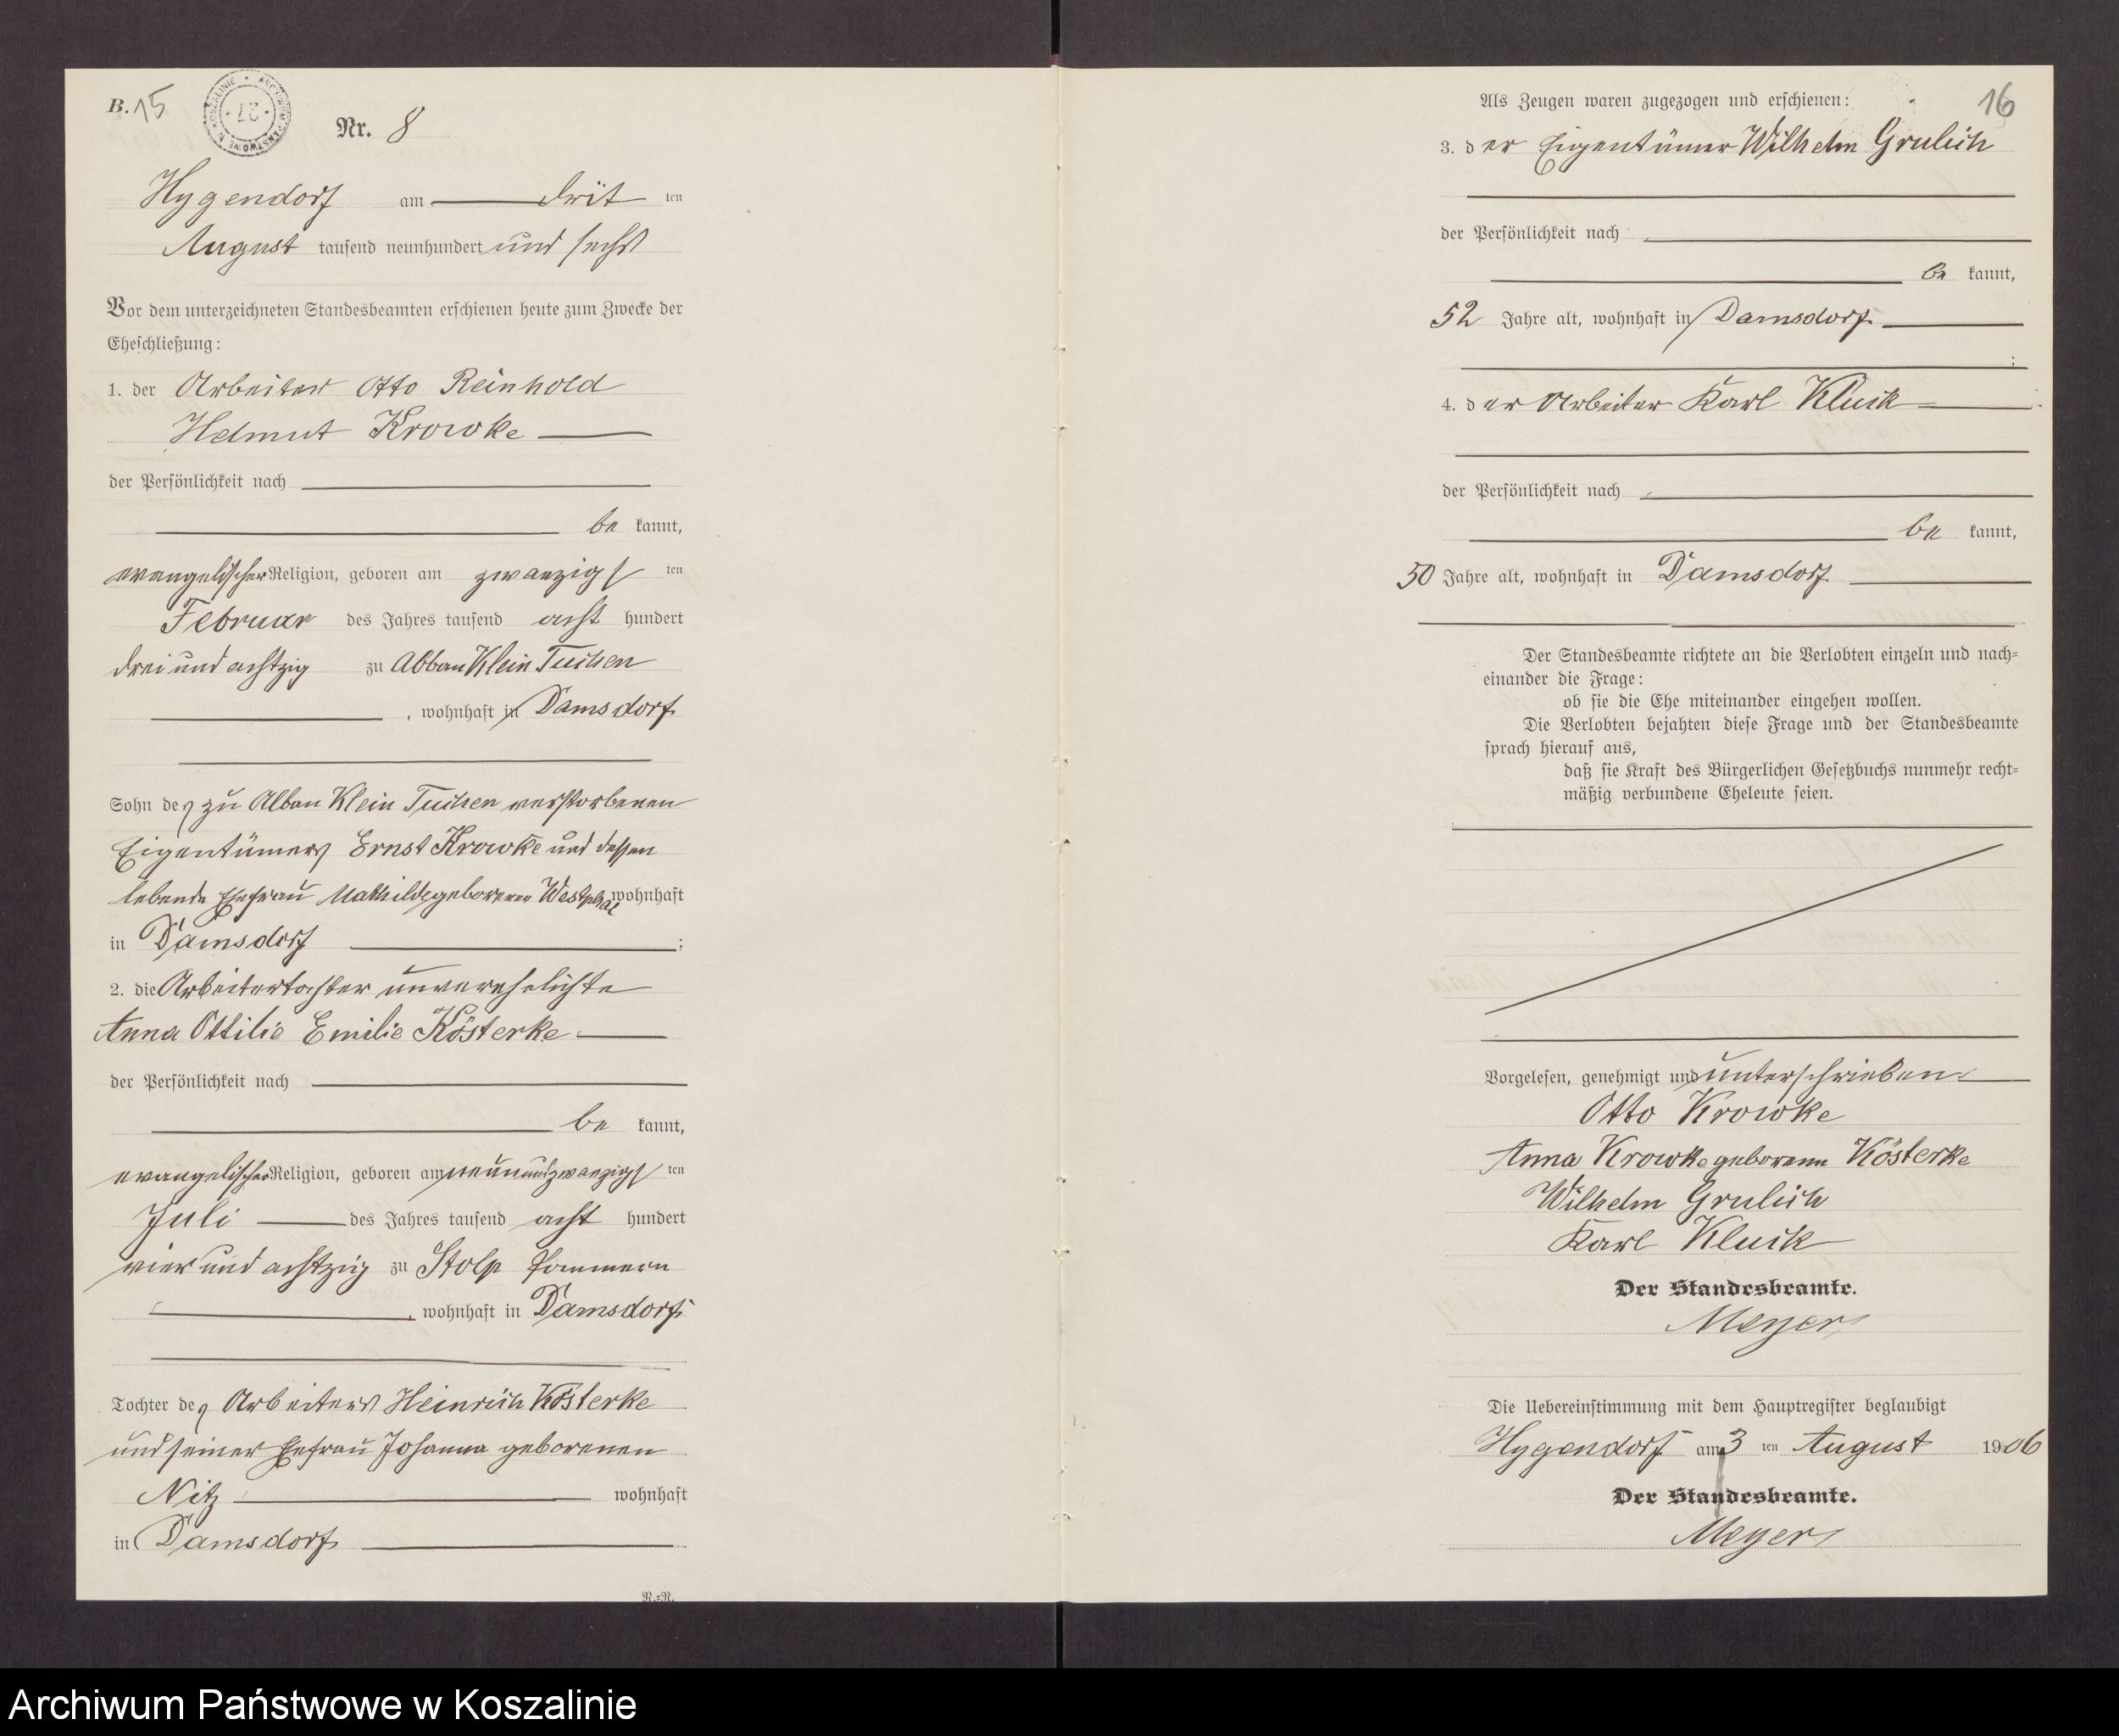 B. 15
Nr. 8
Hygendorf am drit ten
August tausend neunhundert und sechs
Vor dem unterzeichneten Standesbeamten erschienen heute zum Zwecke der
Eheschließung:
1. der Arbeiter Otto Reinhold
Helmut Krowke
der Persönlichkeit nach
be kannt,
evangelischer Religion, geboren am zwanzigs ten
Februar des Jahres tausend acht hundert
drei und achtzig zu Abbau Klein Tuchen
, wohnhaft in Damsdorf
Sohn des zu Abbau Klein Tuchen verstorbenen
Eigentümers Ernst Krowke und dessen
lebende Ehefrau Mathilde geborenen Westphal wohnhaft
in Damsdorf ;
2. die Arbeitertochter unverehelichte
Anna Ottilie Emilie Kösterke
der Persönlichkeit nach
be kannt,
evangelischer Religion, geboren am neunundzwanzigs ten
Juli des Jahres tausend acht hundert
vier und achtzig zu Stolp Pommern
, wohnhaft in Damsdorf
Tochter des Arbeiters Heinrich Kösterke
und seiner Ehefrau Johanna geborenen
Nitz wohnhaft
in Damsdorf
N.=N.
16
Als Zeugen waren zugezogen und erschienen:
3. der Eigentümer Wilhelm Grulich
der Persönlichkeit nach
be kannt,
52 Jahre alt, wohnhaft in Damsdorf
;
4. der Arbeiter Karl Kluck
der Persönlichkeit nach
be kannt,
50 Jahre alt, wohnhaft in Damsdorf
Der Standesbeamte richtete an die Verlobten einzeln und nach=
einander die Frage:
ob sie die Ehe miteinander eingehen wollen.
Die Verlobten bejahten diese Frage und der Standesbeamte
sprach hierauf aus,
daß sie Kraft des Bürgerlichen Gesetzbuchs nunmehr recht=
mäßig verbundene Eheleute seien.
Vorgelesen, genehmigt und unterschrieben
Otto Krowke
Anna Krowke geborene Kösterke
Wilhelm Grulich
Karl Kluck
Der Standesbeamte.
Meyer
Die Uebereinstimmung mit dem Hauptregister beglaubigt
Hygendorf am 3 ten August 1906
Der Standesbeamte.
Meyer
Archiwum Państwowe w Koszalinie